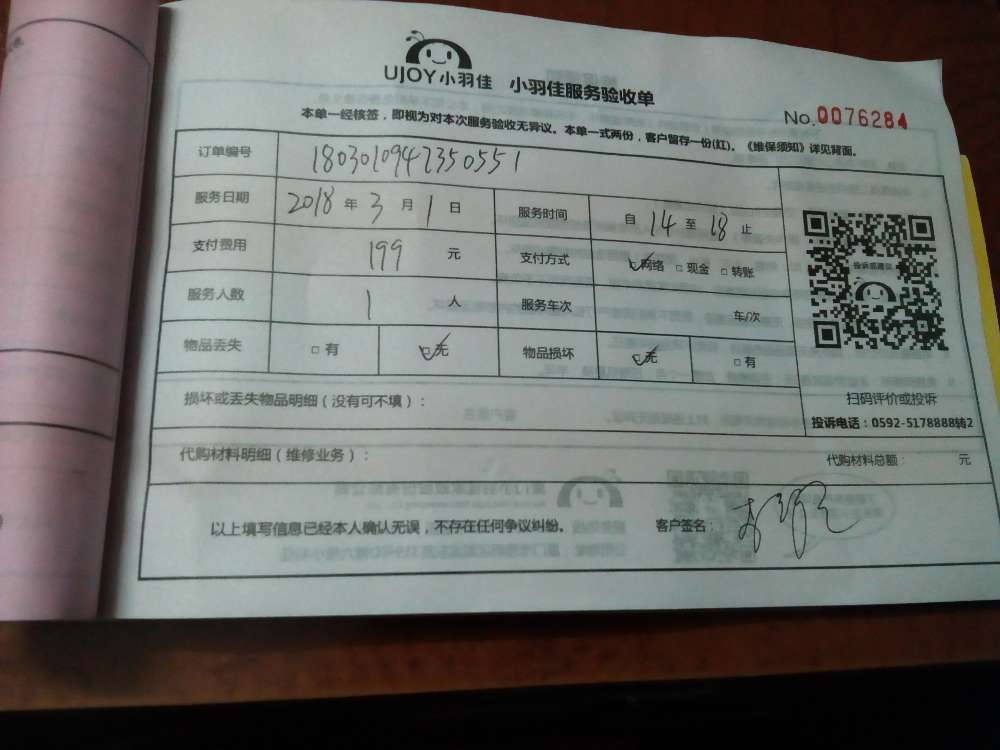 UJOY小羽佳 小羽佳服务验收单
No.0076284
本单一经核签，即视为对本次服务验收无异议。本单一式两份，客户留存一份(红)。《维保须知》详见背面。
订单编号 180301094235055 1
服务日期 2018 年 3 月 1 日 服务时间 自 14 至 18 止
支付费用 199 元 支付方式 □网络 □现金 □转账
服务人数 1 人 服务车次 车/次
物品丢失 □有 □无 物品损坏 □无 □有
投诉或建议
扫码评价或投诉
投诉电话：0592-5178888转2
损坏或丢失物品明细（没有可不填）：
代购材料明细（维修业务）： 代购材料总额： 元
以上填写信息已经本人确认无误，不存在任何争议纠纷。 客户签名：